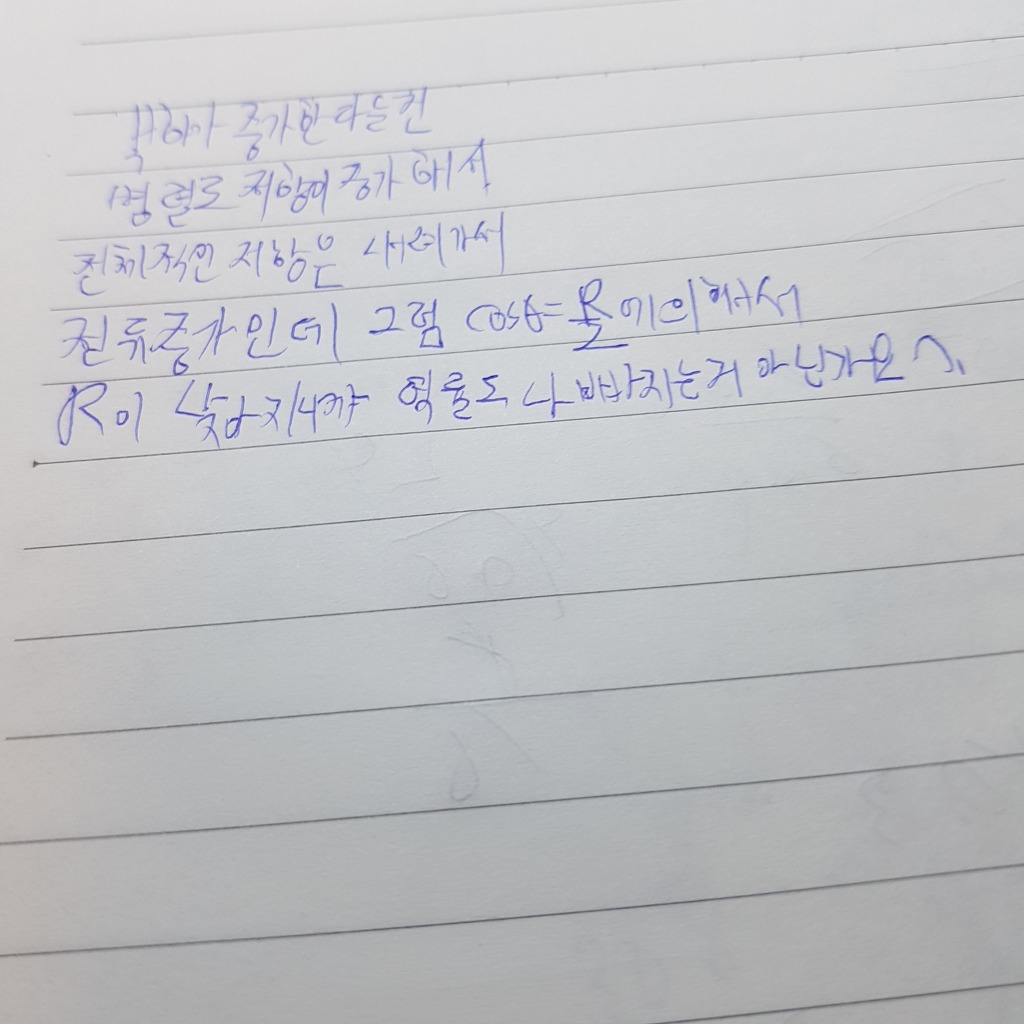 부하가 증가한다는건
병렬로 저항이 증가해서
전체적인 저항은 내려가서
전류증가인데 그럼 cosθ=R/Z에의해서
R이 낮아지니까 역률도 나빠지는거 아닌가요